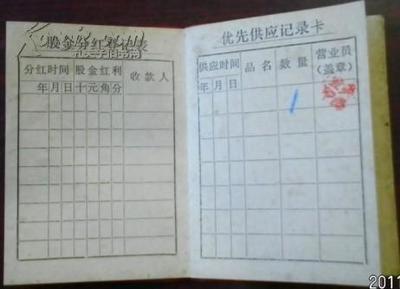 股金分红登记表
分红时间 股金红利 收款人
年月日 十元角分
优先供应记录卡
供应时间 品名 数量 营业员
年月日 (盖章)
1
2011